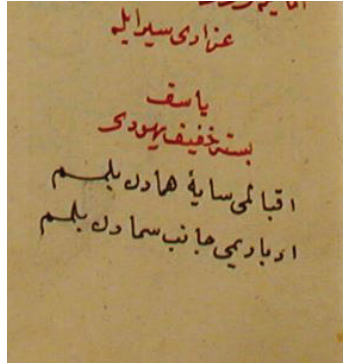 عزادی سیر ایلم
یاسف
بسته خفیف یهودی
اقبالمی سایهٔ همادن بلمم
ادبارمی جانب سمادن بلمم